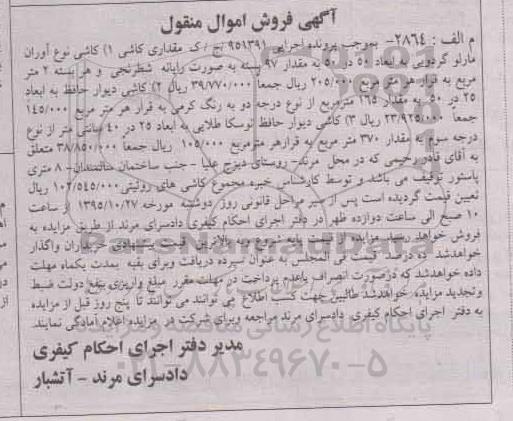 آگهی فروش اموال منقول
م الف : ۲۸۶۴- بموجب پرونده اجرایی ۹۵۱۳۹۱ ج / ک مقداری کاشی ۱) کاشی نوع آوران
مارلو گردویی به ابعاد ۵۰ در ۵۰ به مقدار ۹۷ بسته به صورت رایانه شطرنجی و هر بسته ۲ متر
مربع به قرار هر متر مربع ۲۰۵/۰۰۰ ریال جمعا ۳۹/۷۷۰/۰۰۰ ریال ۲) کاشی دیوار حافظ به ابعاد
۲۵ در ۵۰ به مقدار ۱۶۵ مترمربع از نوع درجه دو به رنگ کرمی به قرار هر متر مربع ۱۴۵/۰۰۰
جمعا ۲۳/۹۲۵/۰۰۰ ریال ۳) کاشی دیوار حافظ توسکا طلایی به ابعاد ۲۵ در ۴۰ سانتی متر از نوع
درجه سوم به مقدار ۳۷۰ متر مربع به قرارهر مترمربع ۱۰۵/۰۰۰ ریال جمعا ۳۸/۸۵۰/۰۰۰ متعلق
به آقای قادر رحیمی که در محل مرند- روستای دیزج علیا -جنب ساختمان سالمندان- ۸ متری
پاستور توقیف می باشد و توسط کارشناس خبره مجموع کاشی های روئیتی ۱۰۲/۵۴۵/۰۰۰ ریال
تعیین قیمت گردیده است پس از سیر مراحل قانونی روز دوشنبه مورخه ۱۳۹۵/۱۰/۲۷ از ساعت
۱۰ صبح الی ساعت دوازده ظهر در دفتر اجرای احکام کیفری دادسرای مرند از طریق مزایده به
فروش خواهد رسید مزایده از قیمت پایه شروع وبه بالاترین قیمت پیشنهادی خریداران واگذار
خواهدشد ده درصد قیمت فی المجلس به عنوان سپرده دریافت وبرای بقیه بمدت یکماه مهلت
داده خواهدشد که درصورت انصراف یاعدم پرداخت در مهلت مقرر مبلغ واریزی بنفع دولت ضبط
وتجدید مزایده خواهدشد طالبین جهت کسب اطلاع می توانند می توانند تا پنج روز قبل از مزایده
به دفتر اجرای احکام کیفری دادسرای مرند مراجعه وبرای شرکت در مزایده اعلام آمادگی نمایند.
مدیر دفتر اجرای احکام کیفری
دادسرای مرند - آتشبار
ParsNamadData
پایگاه اطلاع رسانی مناقصه و مزایده
۰۲۱-۸۸۳۴۹۶۷۰-۵